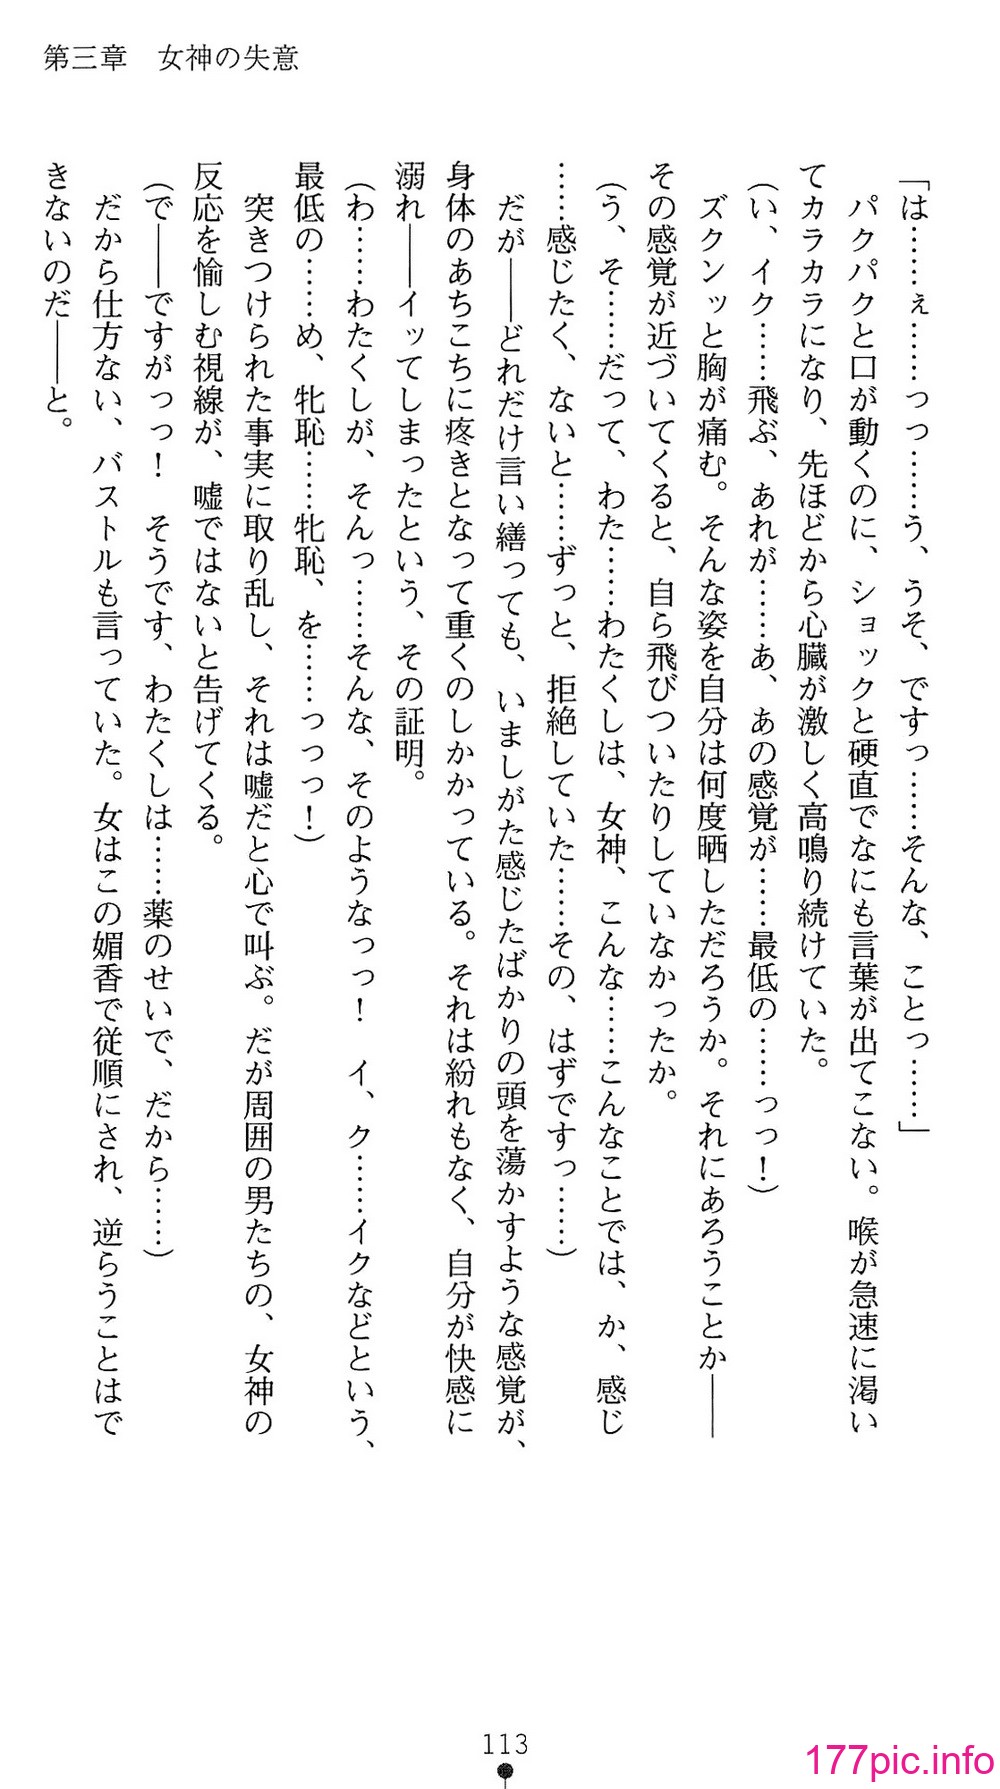 第三章　女神の失意
「は……ぇ……っっ……う、うそ、ですっ……そんな、ことっ……」
　パクパクと口が動くのに、ショックと硬直でなにも言葉が出てこない。喉が急速に渇い
てカラカラになり、先ほどから心臓が激しく高鳴り続けていた。
（い、イク……飛ぶ、あれが……あ、あの感覚が……最低の……っっ！）
　ズクンッと胸が痛む。そんな姿を自分は何度晒しただろうか。それにあろうことか――
その感覚が近づいてくると、自ら飛びついたりしていなかったか。
（う、そ……だって、わた……わたくしは、女神、こんな……こんなことでは、か、感じ
……感じたく、ないと……ずっと、拒絶していた……その、はずですっ……）
　だが――どれだけ言い繕っても、いましがた感じたばかりの頭を蕩かすような感覚が、
身体のあちこちに疼きとなって重くのしかかっている。それは紛れもなく、自分が快感に
溺れ――イッてしまったという、その証明。
（わ……わたくしが、そんっ……そんな、そのようなっっ！　イ、ク……イクなどという、
最低の……め、牝恥……牝恥、を……っっっ！）
　突きつけられた事実に取り乱し、それは嘘だと心で叫ぶ。だが周囲の男たちの、女神の
反応を愉しむ視線が、嘘ではないと告げてくる。
（で――ですがっっ！　そうです、わたくしは……薬のせいで、だから……）
　だから仕方ない、バストルも言っていた。女はこの媚香で従順にされ、逆らうことはで
きないのだ――と。
113
177pic.info